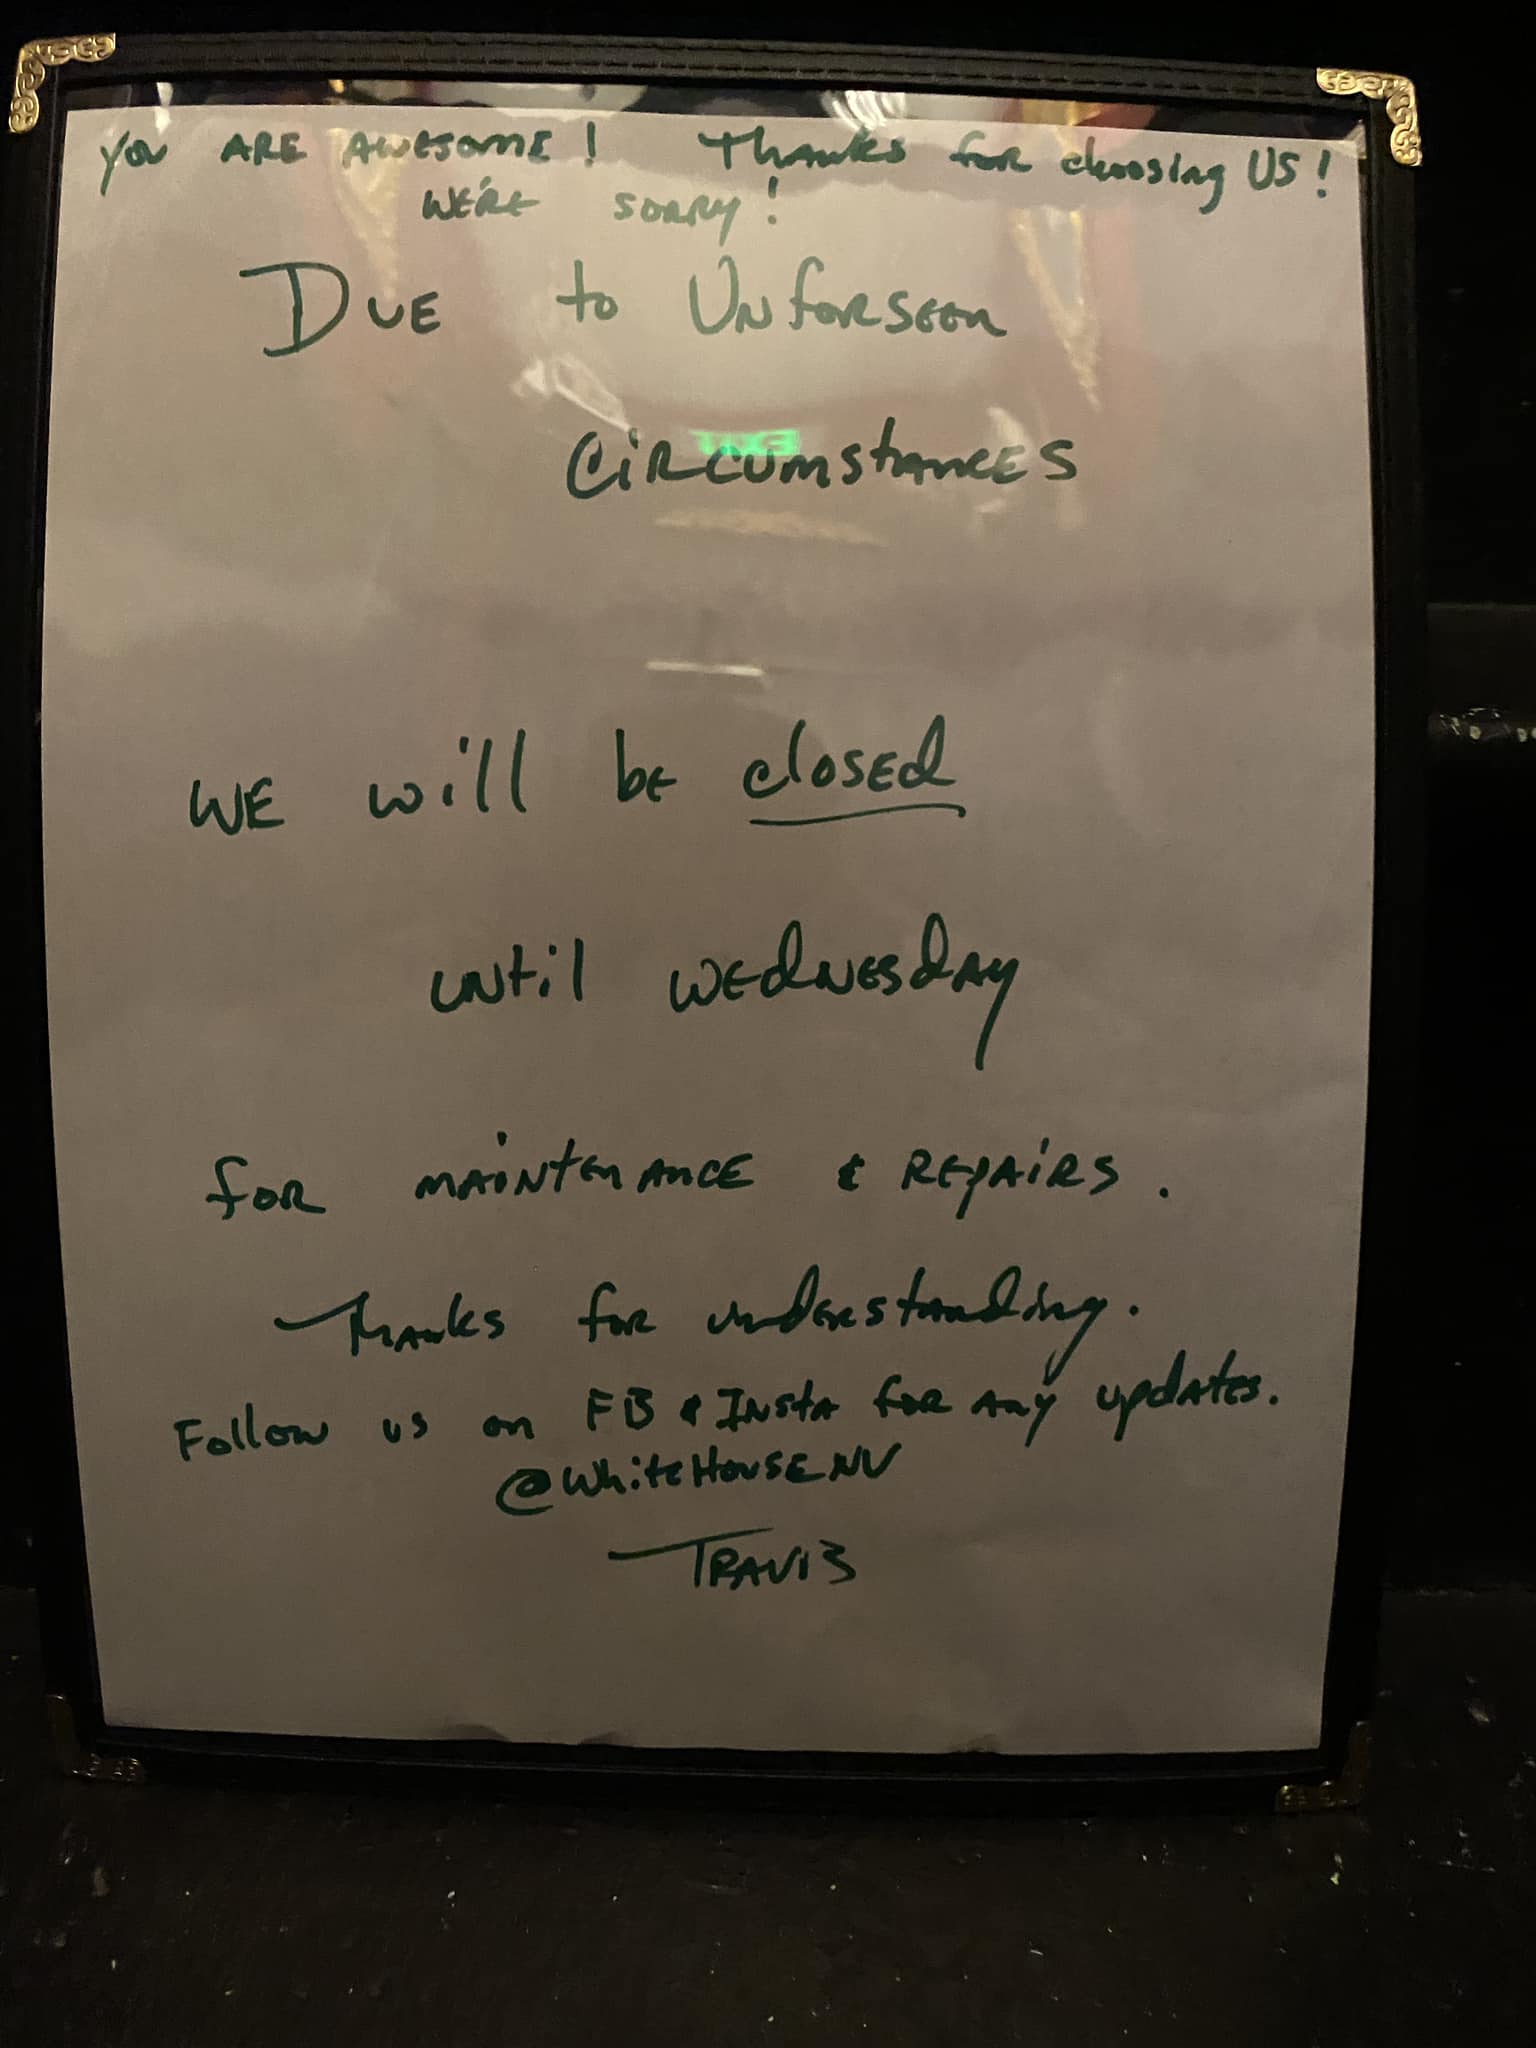 YOU ARE AWESOME! Thanks for choosing US!
WE'RE SORRY!
DUE to UNforSEEN
CiRCUMStANCES
WE will be closed
UNtil WEdNESdAY
foR MAiNtENANCE & REpAiRS.
ThANKS foR UNdERStANdiNg.
Follow US ON FB & INStA foR ANY UpdAtES.
@WhitEHOUSENV
TRAViS